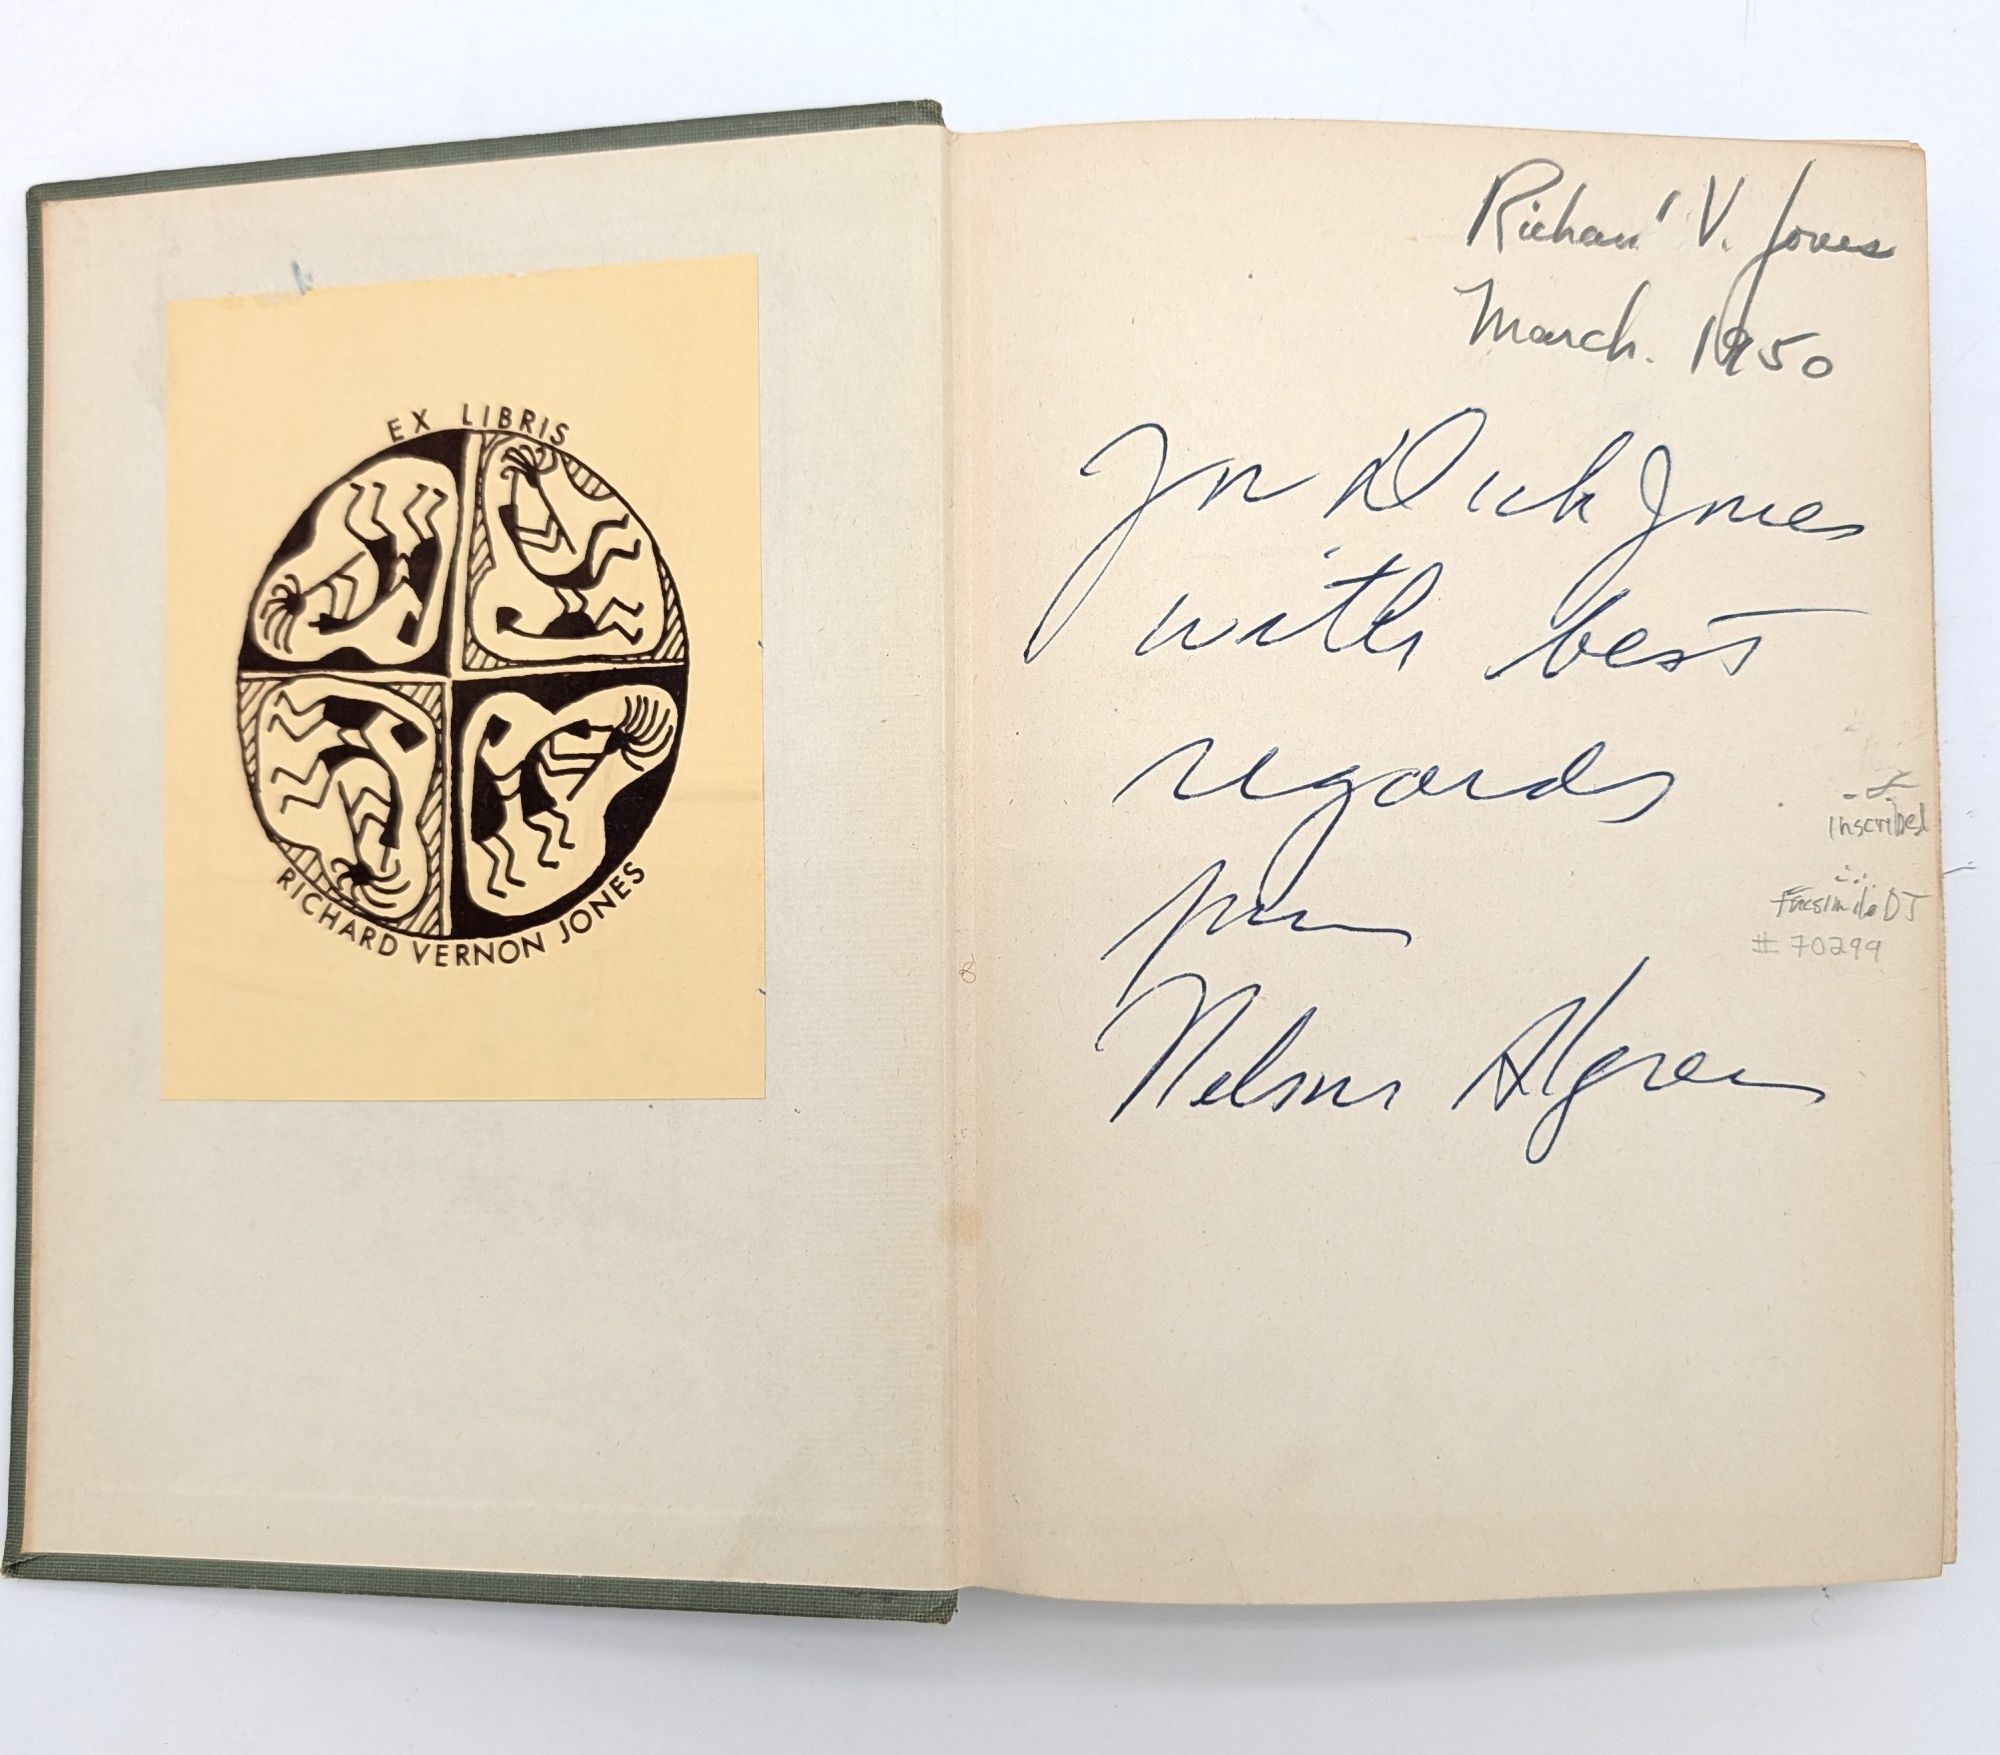 EX LIBRIS
RICHARD VERNON JONES
Richard V. Jones
March. 1950
For Dick Jones
with best
regards
from
Nelson Algren
Inscribed
Facsimile DJ
# 70299